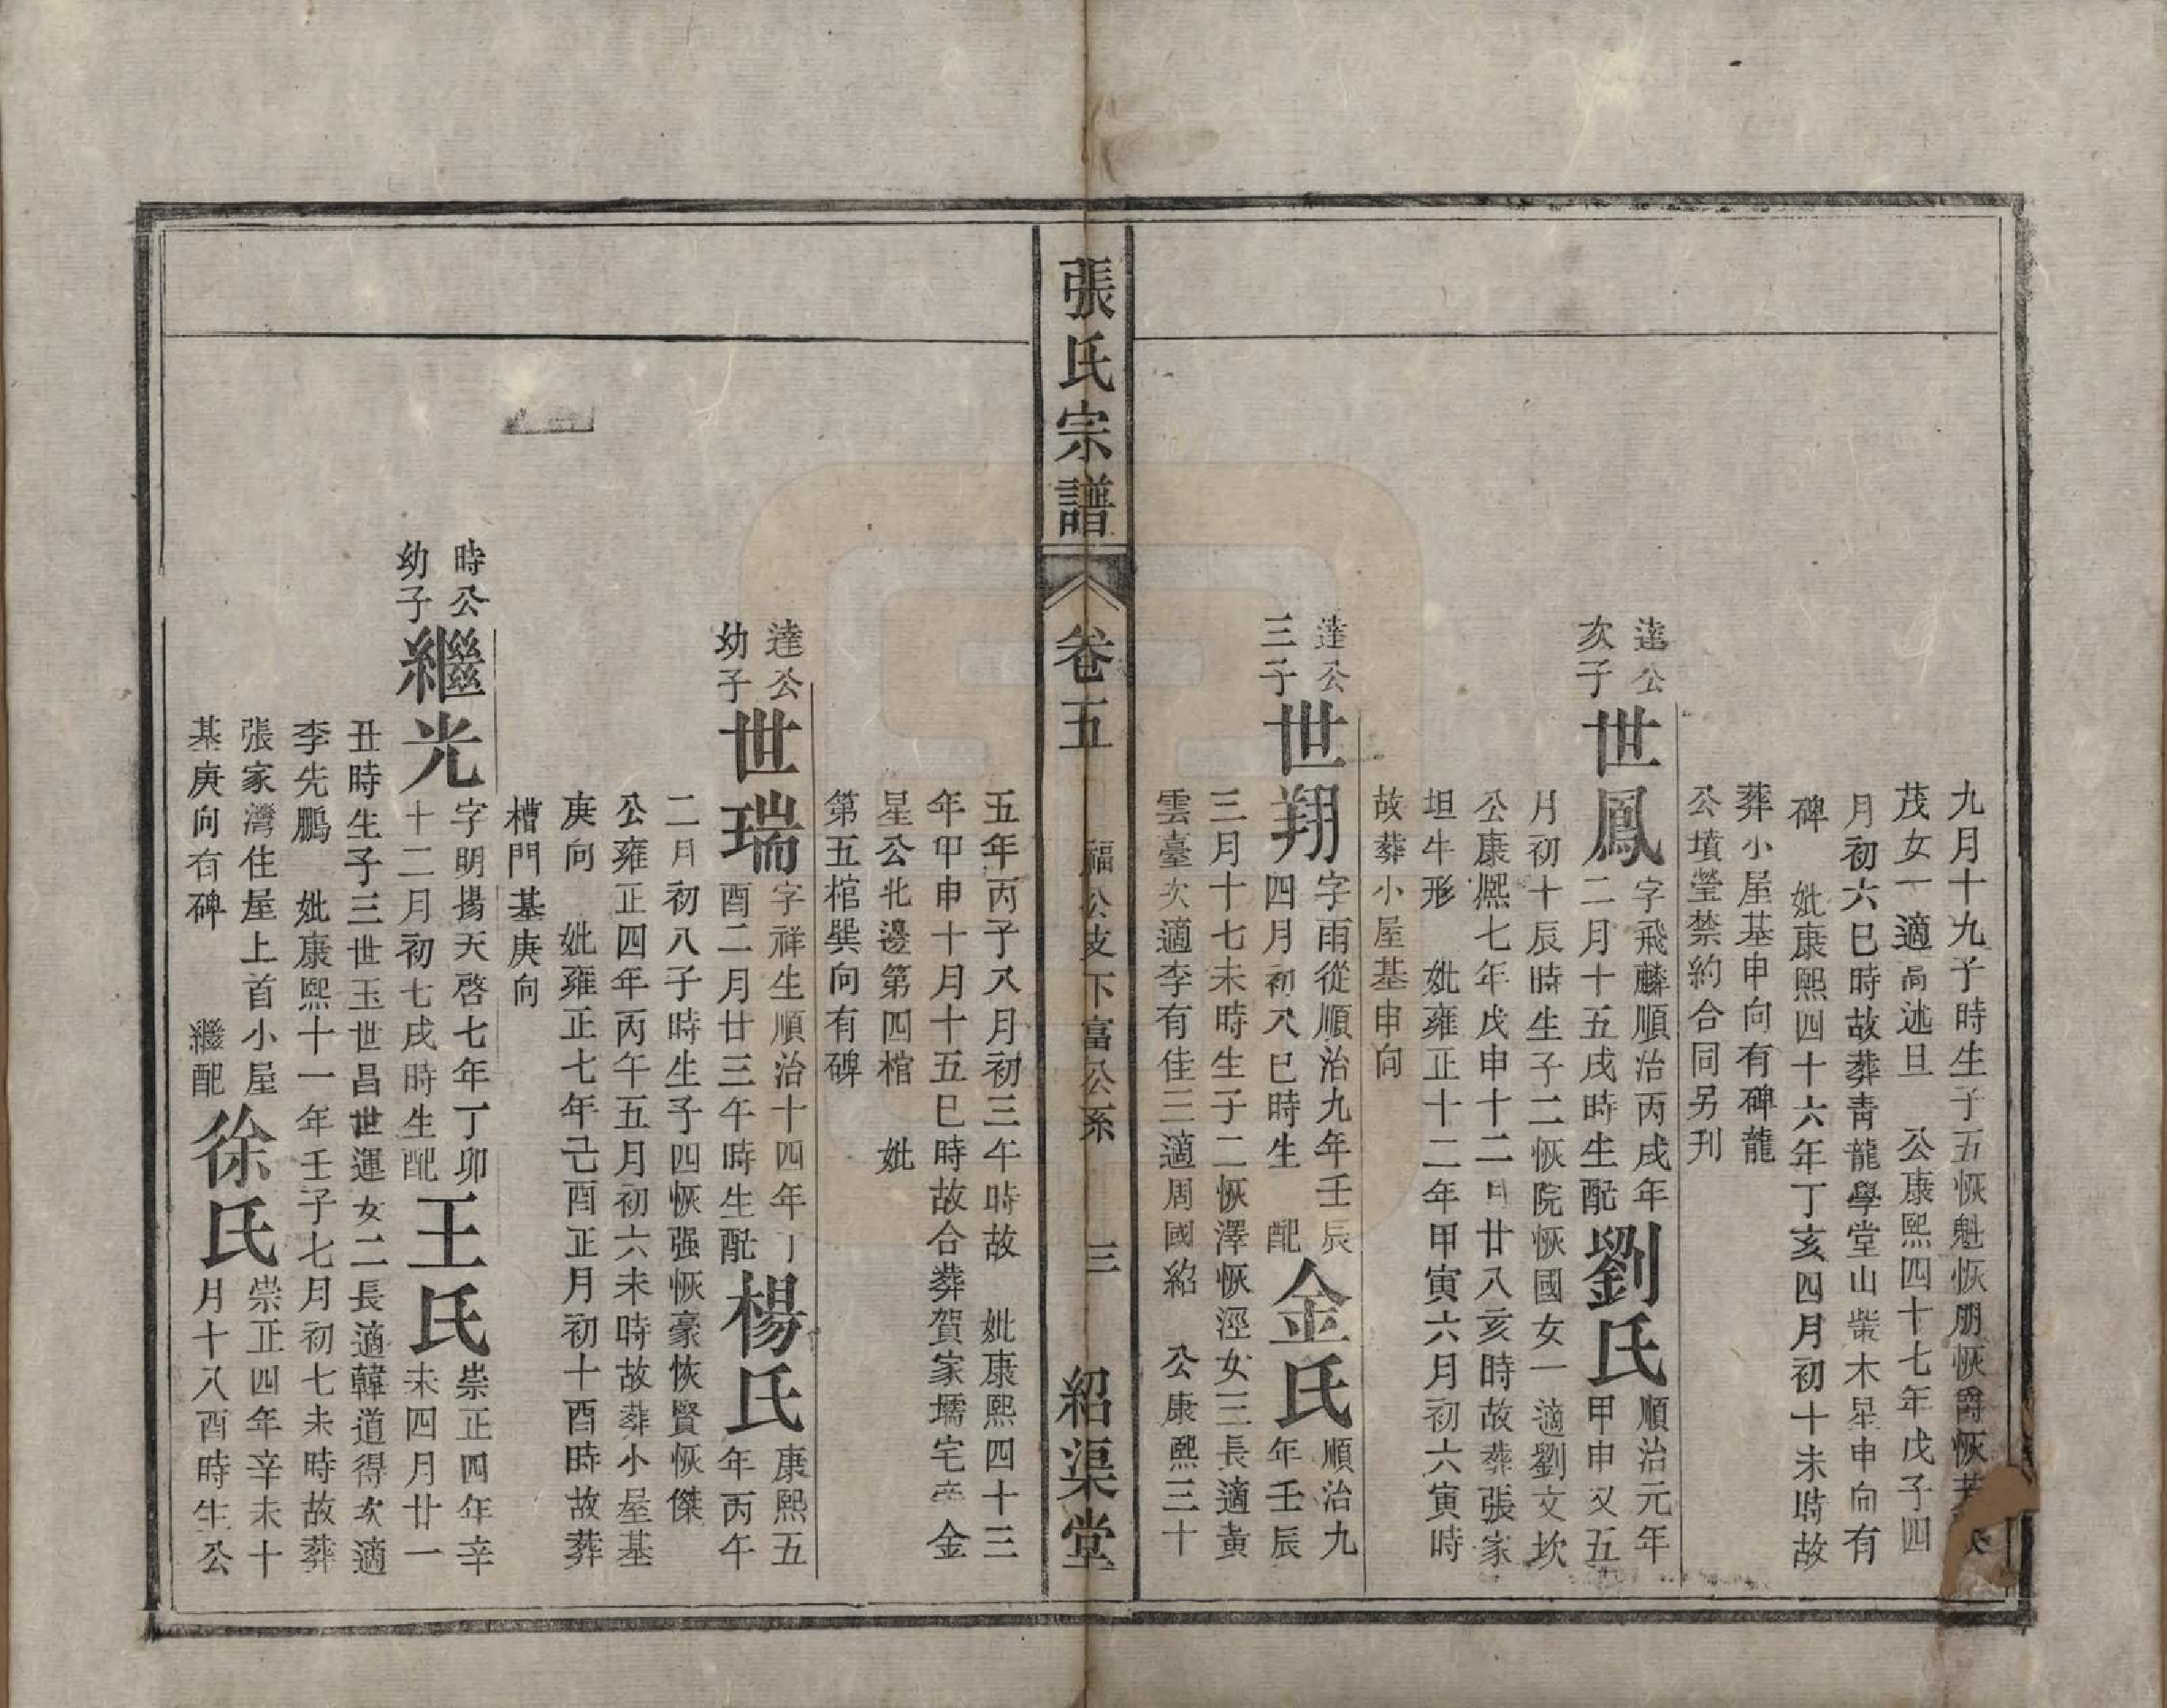 九月十九子時生子五恢魁恢朋恢爵恢
茂女一適高述旦　公康熙四十七年戊子四
月初六巳時故葬青龍學堂山柴木星申向有
碑　妣康熙四十六年丁亥四月初十未時故
葬小屋基申向有碑龍
公墳瑩禁約合同另刊
達公
次子
世鳳
字飛麟順治丙戌年
二月十五戌時生配
劉氏
順治元年
甲申又五
月初十辰時生子二恢院恢國女一適劉文坎
公康熙七年戊申十二月廿八亥時故葬張家
坦牛形　妣雍正十二年甲寅六月初六寅時
故葬小屋基申向
達公
三子
世翔
字雨從順治九年壬辰
四月初八巳時生　配
金氏
順治九
年壬辰
三月十七未時生子二恢澤恢涇女三長適黃
雲臺次適李有佳三適周國紹　公康熙三十
張氏宗譜
卷五
福公支下富公系
三
紹渠堂
五年丙子八月初三午時故　妣康熙四十三
年甲申十月十五巳時故合葬賀家壖宅 金
星公北邊第四棺　妣
第五棺巽向有碑
達公
幼子
世瑞
字祥生順治十四年丁
酉二月廿三午時生配
楊氏
康熙五
年丙午
二月初八子時生子四恢强恢豪恢賢恢傑
公雍正四年丙午五月初六未時故葬小屋基
庚向　妣雍正七年己酉正月初十酉時故葬
槽門基庚向
時公
幼子
繼光
字明揚天啓七年丁卯
十二月初七戌時生配
王氏
崇正四年辛
未四月廿一
丑時生子三世玉世昌世運女二長適韓道得次適
李先鵬　妣康熙十一年壬子七月初七未時故葬
張家灣住屋上首小屋
基庚向有碑　繼配
徐氏
崇正四年辛未十
月十八酉時生公